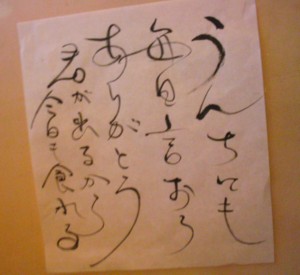 うんちにも
毎日言おう
ありがとう
君が出るから
今日も食れる